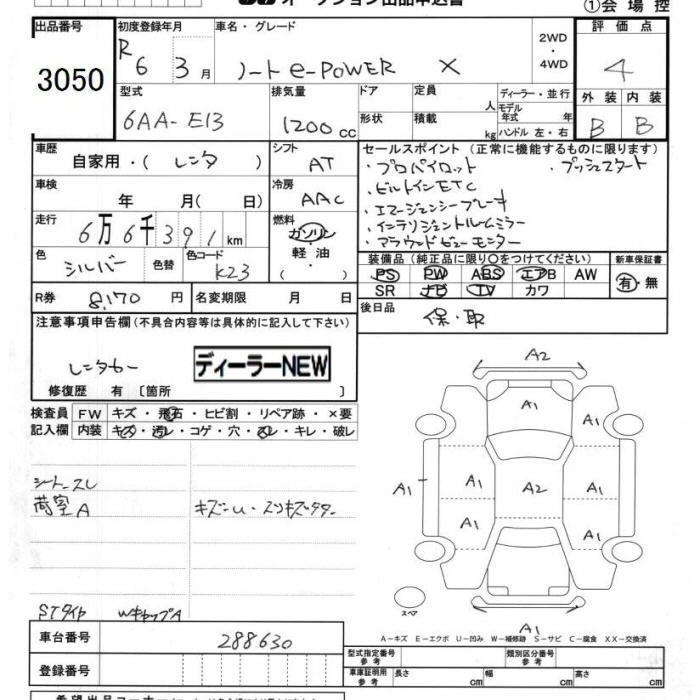 オークション出品申込書 ①会場控
出品番号 初度登録年月 車名・グレード 2WD ・ 4WD 評価点
3050 R6 3月 ノートe-POWER X 4
型式 排気量 ドア 定員 人 ディーラー・並行 外装 内装
6AA-E13 1200cc 形状 積載 kg モデル年式 年 ハンドル 左・右 B B
車歴 自家用・(レンタ) シフト AT
セールスポイント (正常に機能するものに限ります)
・プロパイロット ・プッシュスタート
・ビルトインETC
・エマージェンシーブレーキ
・インテリジェントルームミラー
・アラウンドビューモニター
車検 年 月(日) 冷房 AAC
走行 6万6千391km 燃料 ガソリン・軽油・( )
色 シルバー 色替 色コード K23
装備品 (純正品に限り○をつけてください) 新車保証書
PS PW ABS エアB AW 有・無
SR ナビ TV カワ
R券 8,170円 名変期限 月 日
後日品 保・取
注意事項申告欄(不具合内容等は具体的に記入して下さい)
レンタUP
ディーラーNEW
修復歴 有 [箇所 ]
検査員 FW キズ・飛石・ヒビ割・リペア跡・×要
記入欄 内装 キズ・汚レ・コゲ・穴・スレ・キレ・破レ
シートスレ
荷室A キズ～U・スリキズ多々
STタイヤ WキャップA
A2
A1
A1 A1
A1 A1 A2 A1
A1 A1
スペア
A1
A－キズ E－エクボ U－凹み W－補修跡 S－サビ C－腐食 XX－交換済
車台番号 288630
型式指定番号 参考 類別区分番号 参考
登録番号
車庫証明用 参考 長さ cm 幅 cm 高さ cm